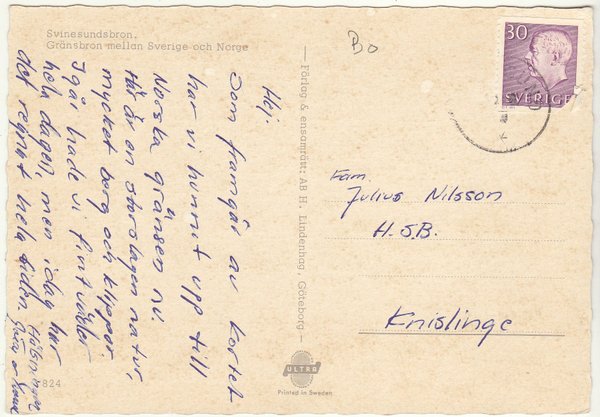 Svinesundsbron.
Gränsbron mellan Sverige och Norge
Bo
30
SVERIGE
Hej
Som framgår av kortet
har vi hunnit upp till
Norska gränsen nu.
Här är en storslagen natur,
mycket berg och klippor
Igår hade vi fint väder
hela dagen, men idag har
det regnat hela tiden
Hälsningar
824
— Förlag & ensamrätt: AB H. Lindenhag, Göteborg —
Fam.
Julius Nilsson
H.S.B.
Knislinge
ULTRA
Printed in Sweden